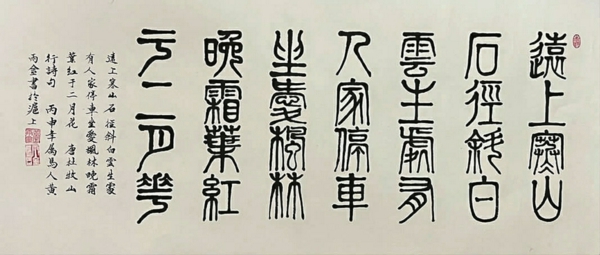 遠上寒山
石徑斜白
雲生處有
人家停車
坐愛楓林
晚霜葉紅
于二月花
遠上寒山石徑斜白雲生處
有人家停車坐愛楓林晚霜
葉紅于二月花 唐杜牧山
行詩句 丙申年属馬人黃
雨金書於滬上